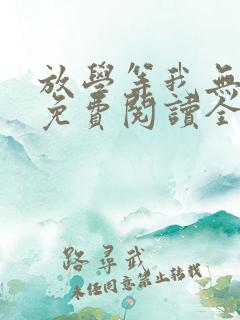 放學等我無
免費閱讀全
路尋武
未經同意禁止轉載